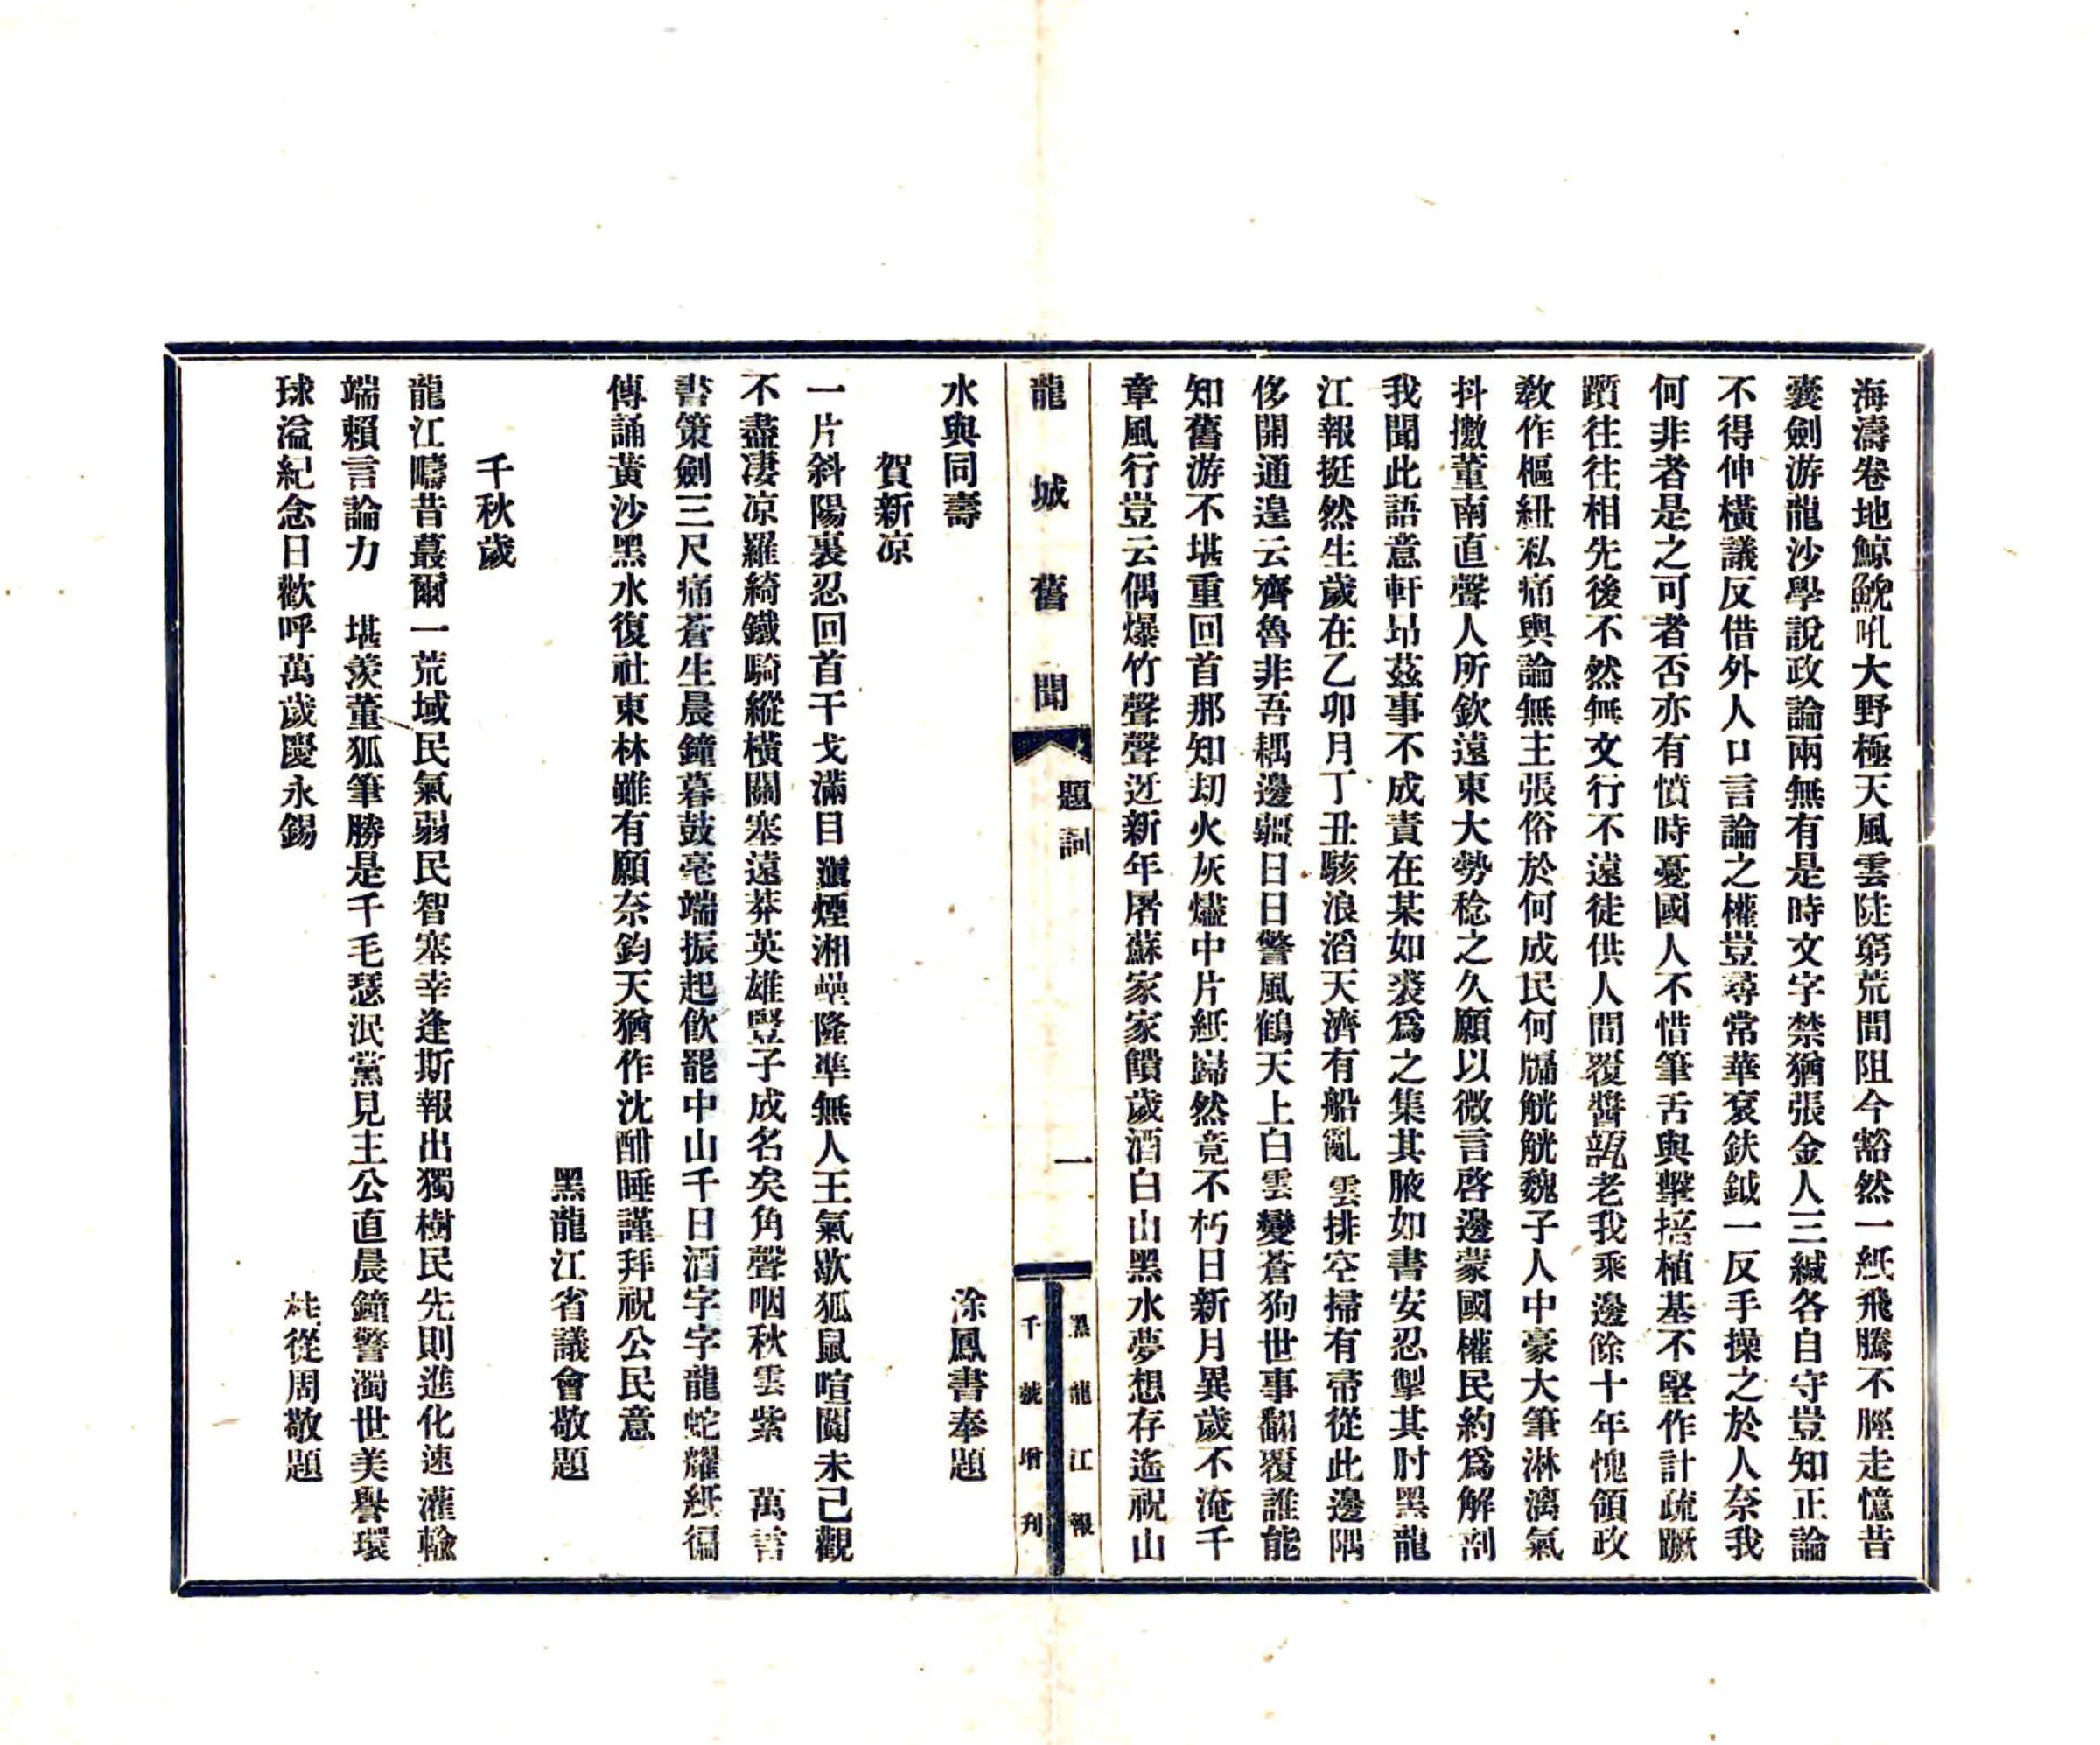 海濤卷地鯨鯢吼大野極天風雲陡窮荒間阻今豁然一紙飛騰不脛走憶昔
囊劍游龍沙學說政論兩無有是時文字禁猶張金人三緘各自守豈知正論
不得伸橫議反借外人口言論之權豈尋常華袞鈇鉞一反手操之於人奈我
何非者是之可者否亦有憤時憂國人不惜筆舌與擊掊植基不堅作計疏蹶
躓往往相先後不然無文行不遠徒供人間覆醬瓿老我乘邊餘十年愧領政
教作樞紐私痛輿論無主張俗於何成民何牖觥觥魏子人中豪大筆淋漓氣
抖擻董南直聲人所欽遠東大勢稔之久願以微言啓邊蒙國權民約爲解剖
我聞此語意軒昂茲事不成責在某如裘爲之集其腋如書安忍掣其肘黑龍
江報挺然生歲在乙卯月丁丑駭浪滔天濟有船亂雲排空掃有帚從此邊隅
侈開通遑云齊魯非吾耦邊疆日日警風鶴天上白雲變蒼狗世事翻覆誰能
知舊游不堪重回首那知刧火灰燼中片紙巋然竟不朽日新月異歲不淹千
章風行豈云偶爆竹聲聲迓新年屠蘇家家饋歲酒白山黑水夢想存遙祝山
龍城舊聞
題詞
一
黑龍江報
千號增刊
水與同壽
涂鳳書奉題
賀新凉
一片斜陽裏忍回首干戈滿目滇煙湘壘隆準無人王氣歇狐鼠喧闐未已觀
不盡凄凉羅綺鐵騎縱橫關塞遠莽英雄豎子成名矣角聲咽秋雲紫　萬言
書策劍三尺痛蒼生晨鐘暮鼓毫端振起飲罷中山千日酒字字龍蛇耀紙徧
傳誦黃沙黑水復社東林雖有願奈鈞天猶作沈酣睡謹拜祝公民意
黑龍江省議會敬題
千秋歲
龍江疇昔蕞爾一荒域民氣弱民智塞幸逢斯報出獨樹民先則進化速灌輸
端賴言論力　堪羨董狐筆勝是千毛瑟泯黨見主公直晨鐘警濁世美譽環
球溢紀念日歡呼萬歲慶永錫
桂從周敬題